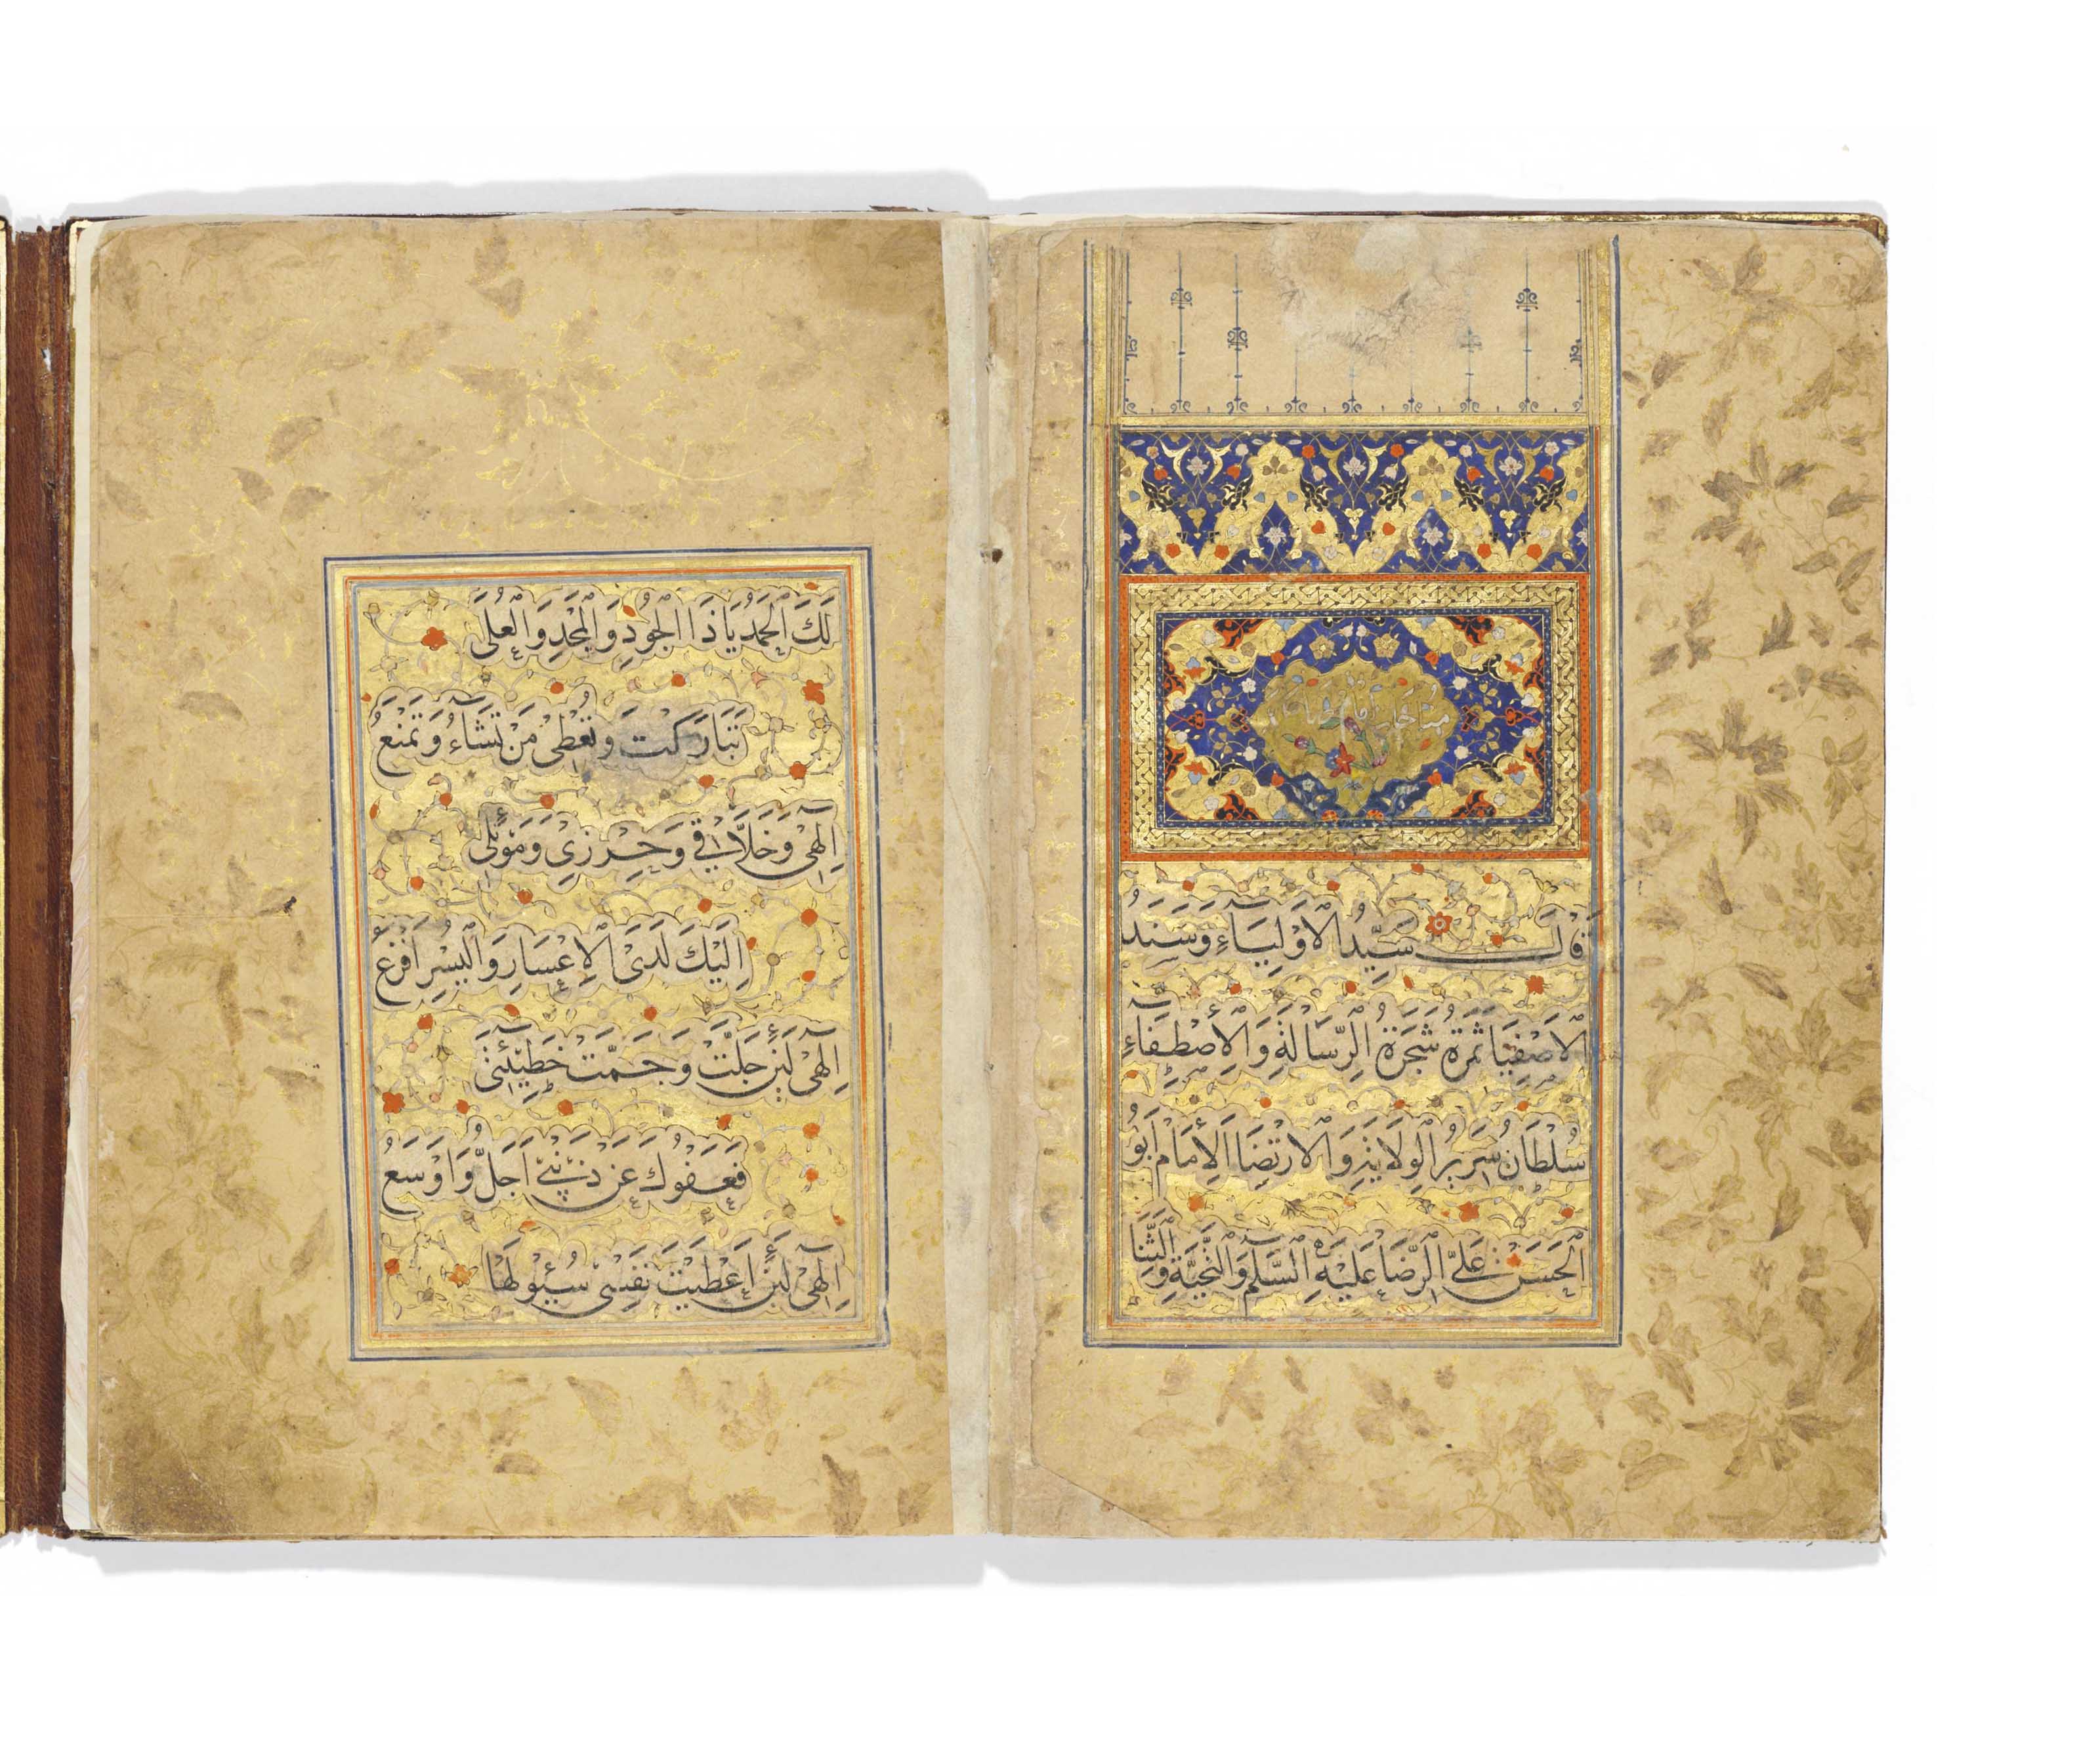 قَالَ سَيِّدُ الْاَوْلِيَاءِ وَسَنَدُ
الْاَصْفِيَا ثَمَرَةُ شَجَرَةِ الرِّسَالَةِ وَالْاِصْطِفَاءِ
سُلْطَانُ سَرِيرِ الْوِلَايَةِ وَالْاِرْتِضَا اَلْاِمَامْ اَبُو
الْحَسَنْ عَلِىّ الرِّضَا عَلَيْهِ السَّلٰمُ وَالتَّحِيَّةِ وَالثَّنَا
لَكَ الْحَمْدُ يَا ذَا الْجُودِ وَالْمَجْدِ وَالْعُلٰى
تَبَارَكْتَ وَتُعْطِىْ مَنْ تَشَاءُ وَتَمْنَعُ
اِلٰهِىْ وَخَلَّاقِىْ وَحِرْزِىْ وَمَوْئِلِىْ
اِلَيْكَ لَدَى الْاِعْسَارِ وَالْيُسْرِ اَفْزَعُ
اِلٰهِىْ لَئِنْ جَلَّتْ وَجَمَّتْ خَطِيْئَتِىْ
فَعَفْوُكَ عَنْ ذَنْبِىْ اَجَلُّ وَاَوْسَعُ
اِلٰهِىْ لَئِنْ اَعْطَيْتَ نَفْسِىْ سُئْوُلَهَا